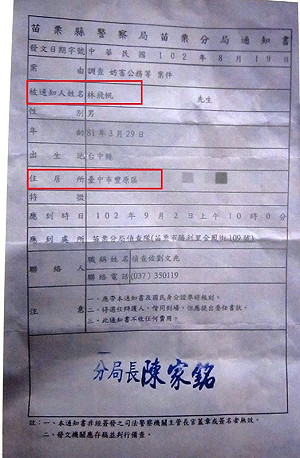 苗栗縣警察局苗栗分局通知書
發文日期字號 中華民國 102年8月19日
案由 調查 妨害公務等 案件
被通知人姓名 林飛帆 先生
性別 男
年齡 81年3月29日
出生地 台中縣
住居所 臺中市豐原區
特徵
應到時日 102年9月2日上午10時0分
應到處所 苗栗分局偵查隊(苗栗市勝利里金鳳街109號)
聯絡人 職稱姓名 偵查佐劉文兆
聯絡電話 (037) 350119
注意 一、應帶本通知書及國民身分證準時報到。
二、得選任辯護人,偕同到場,但應提出委任書狀。
三、此通知書不收任何費用。
分局長 陳家銘
註:一、本通知書非經簽發之司法警察機關主管長官蓋章或簽名者無效。
二、發文機關應存稿並列行備查。